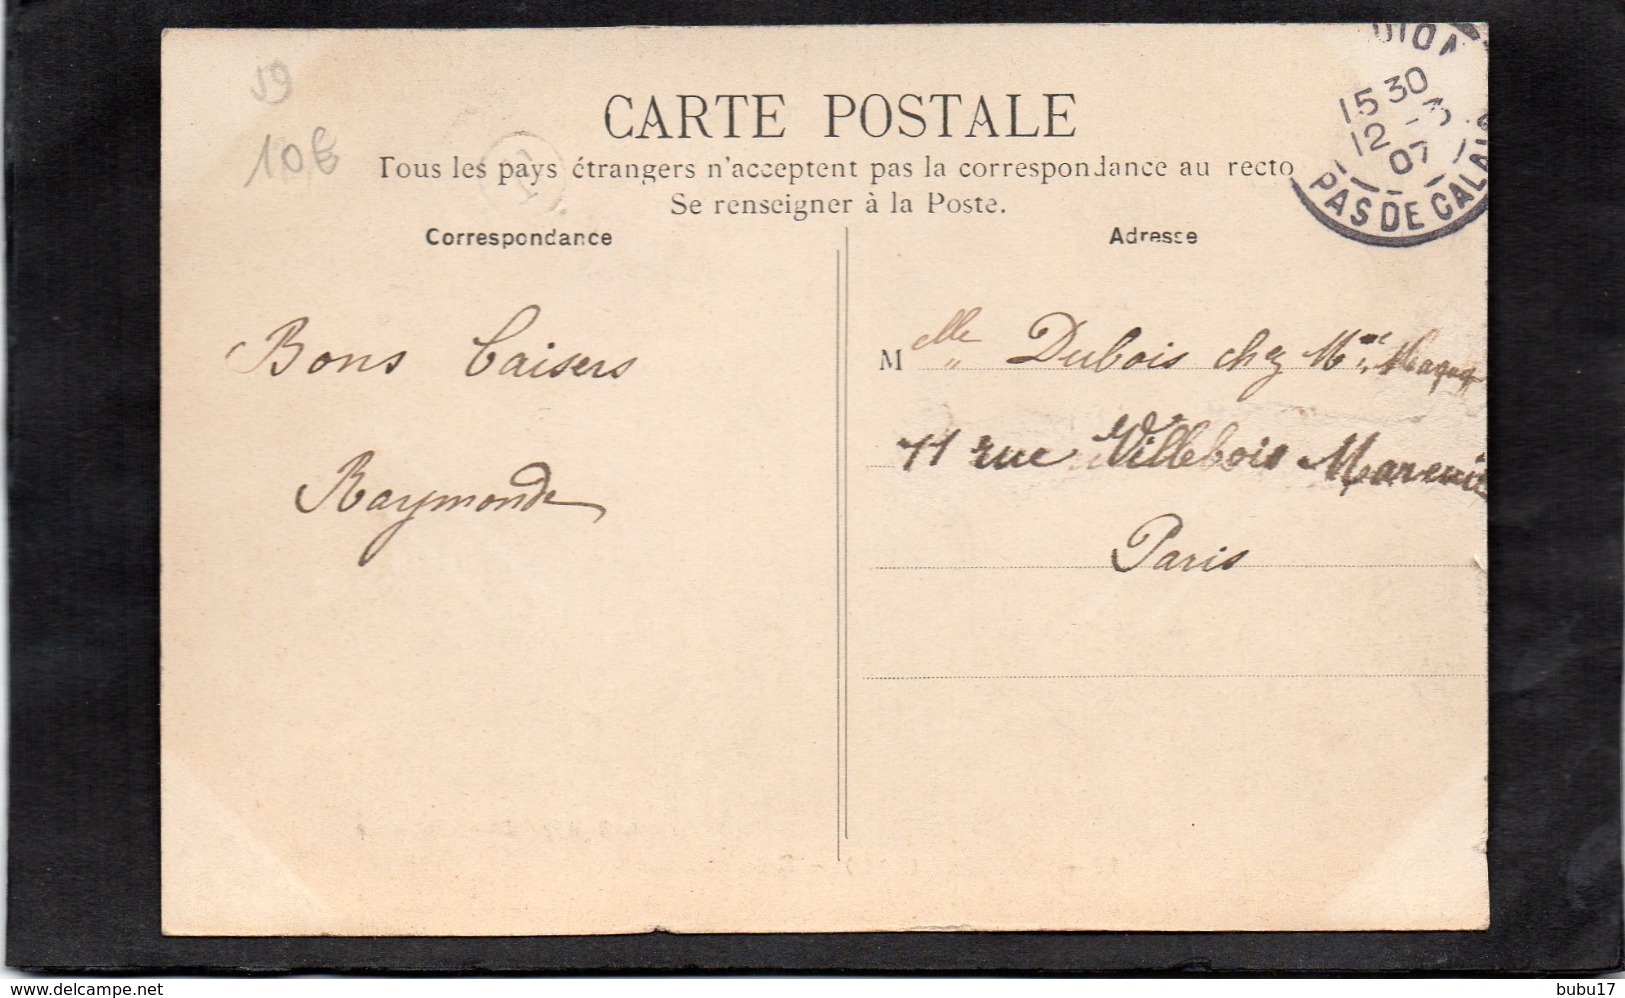 59
10€
CARTE POSTALE
Tous les pays étrangers n'acceptent pas la correspondance au recto
Se renseigner à la Poste.
Correspondance
Adresse
15 30
12 -3
07
PAS DE CALAIS
Bons baisers
Raymonde
Melle Dubois chez Mme
11 rue Villebois Mareuil
Paris
www.delcampe.net
bubu17